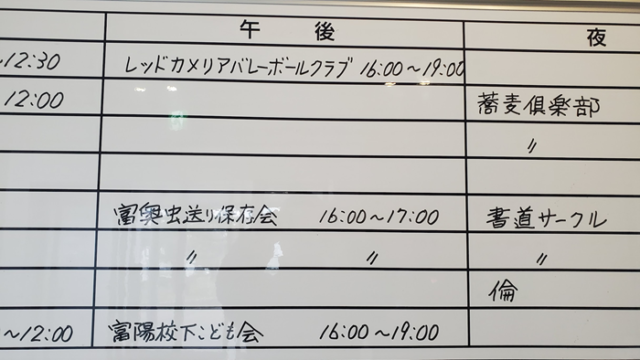 午後 夜
~12:30 レッドカメリアバレーボールクラブ 16:00~19:00
12:00 蕎麦倶楽部
〃
富奥虫送り保存会 16:00~17:00 書道サークル
〃 〃 〃
倫
~12:00 富陽校下こども会 16:00~19:00